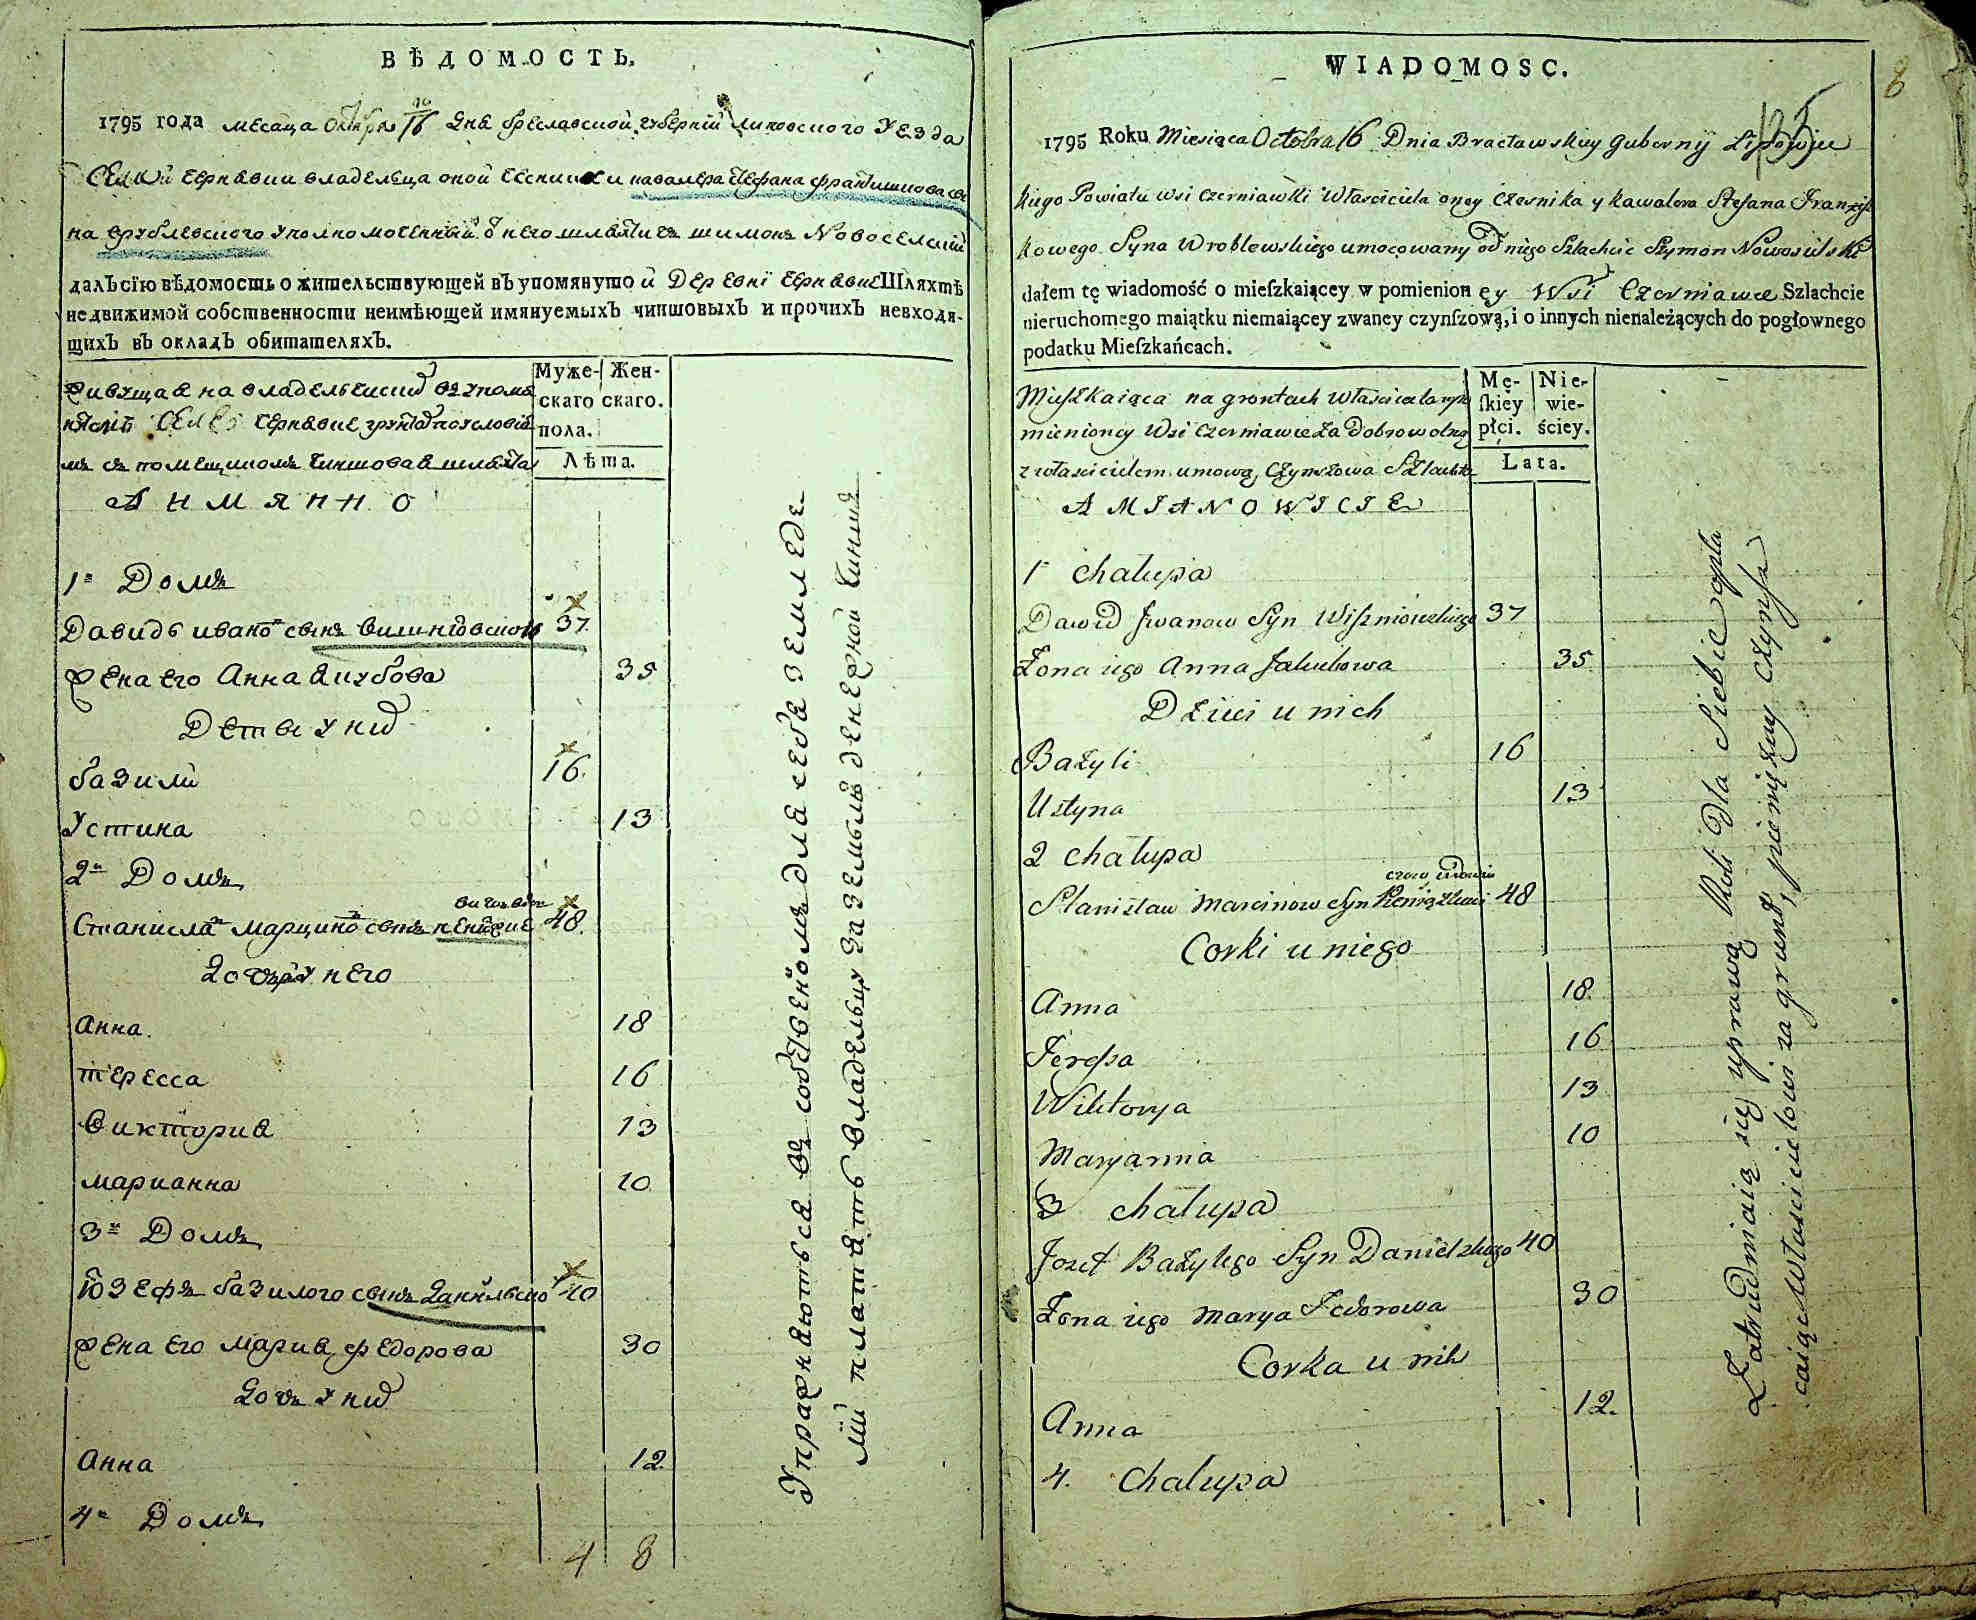 ВѢДОМОСТЬ.
1795 года месаца октября 16 дня Бреславской губерніи Липовского уезда
Черневки владельца оной чесника и кавалера Стефана Францишкова сы
на Врублевского уполномоченный от него шляхтичъ Шимонъ Новоселскій
далъ сію вѣдомость о жительствующей въ упомянутой деревнѣ Черневке Шляхтѣ
недвижимой собственности неимѣющей имянуемыхъ чиншовыхъ и прочихъ невходя-
щихъ въ окладъ обитателяхъ.
Муже- Жен-
скаго скаго.
пола.
Лѣта.
Живущая на владельческой въ упомя
нутомъ селе Черневке грунтахъ по условію
мъ съ помещикомъ чиншовая шляхта
А И М Я Н Н О
1й Домъ
Давидъ Иванов сынъ 37
Жена его Анна Якубова 35
Дети у них
Базили 16.
Устина 13
2й Домъ
Станислав Марцинов сынъ 48.
Дочери у него
Анна. 18
Тересса 16
Виктория 13
Марианна 10
3й Домъ
Іозефъ Базилого сынъ 40
Жена его Мария Федорова 30
Дочь у них
Анна 12.
4й Домъ
4 8
Упражняються въ собственомъ для себя земледе
лїи платять владельцу за земьлю денежной чиншъ
8
WIADOMOSC.
1795 Roku Miesiąca Octobra 16 Dnia Bracławskiey Guberny Lipowie
kiego Powiatu wsi Czerniawki Właściciela oney Czesnika y Kawalera Stefana Franzysz
kowego Syna Wroblewskiego umocowany od niego Szlachcic Szymon Nowosielski
dałem tę wiadomość o mieſzkaiącey w pomienion ey Wsi Czerniawce Szlachcie
nieruchomego maiątku niemaiącey zwaney czynſzową, i o innych nienależących do pogłownego
podatku Mieſzkańcach.
Mę- Nie-
ſkiey wie-
płci. ściey.
Lata.
Mieszkaiąca na grontach Właściciela wspo
mienioney Wsi Czerniawce za dobrowolną
z właścicielem umową, Czynszowa Szlachta
A M I A N O W I C I E
1 Chałupa
Dawid Jwanow Syn Wiszniowskiego 37
Żona iego Anna Jakubowa 35
Dzieci u nich
Bazyli 16
Ustyna 13
2 Chałupa
Stanisław Marcinow Syn 48
Corki u niego
Anna 18.
Teressa 16
Wiktorya 13
Maryanna 10
3 Chałupa
Jozef Bazylego Syn Danielskiego 40
Żona iego Marya Fedorowa 30
Corka u nich
Anna 12.
4. Chałupa
Zatrudniaią się uprawą Roli dla Siebie opła
caiąc Właścicielowi za grunt, pieniężny czynsz